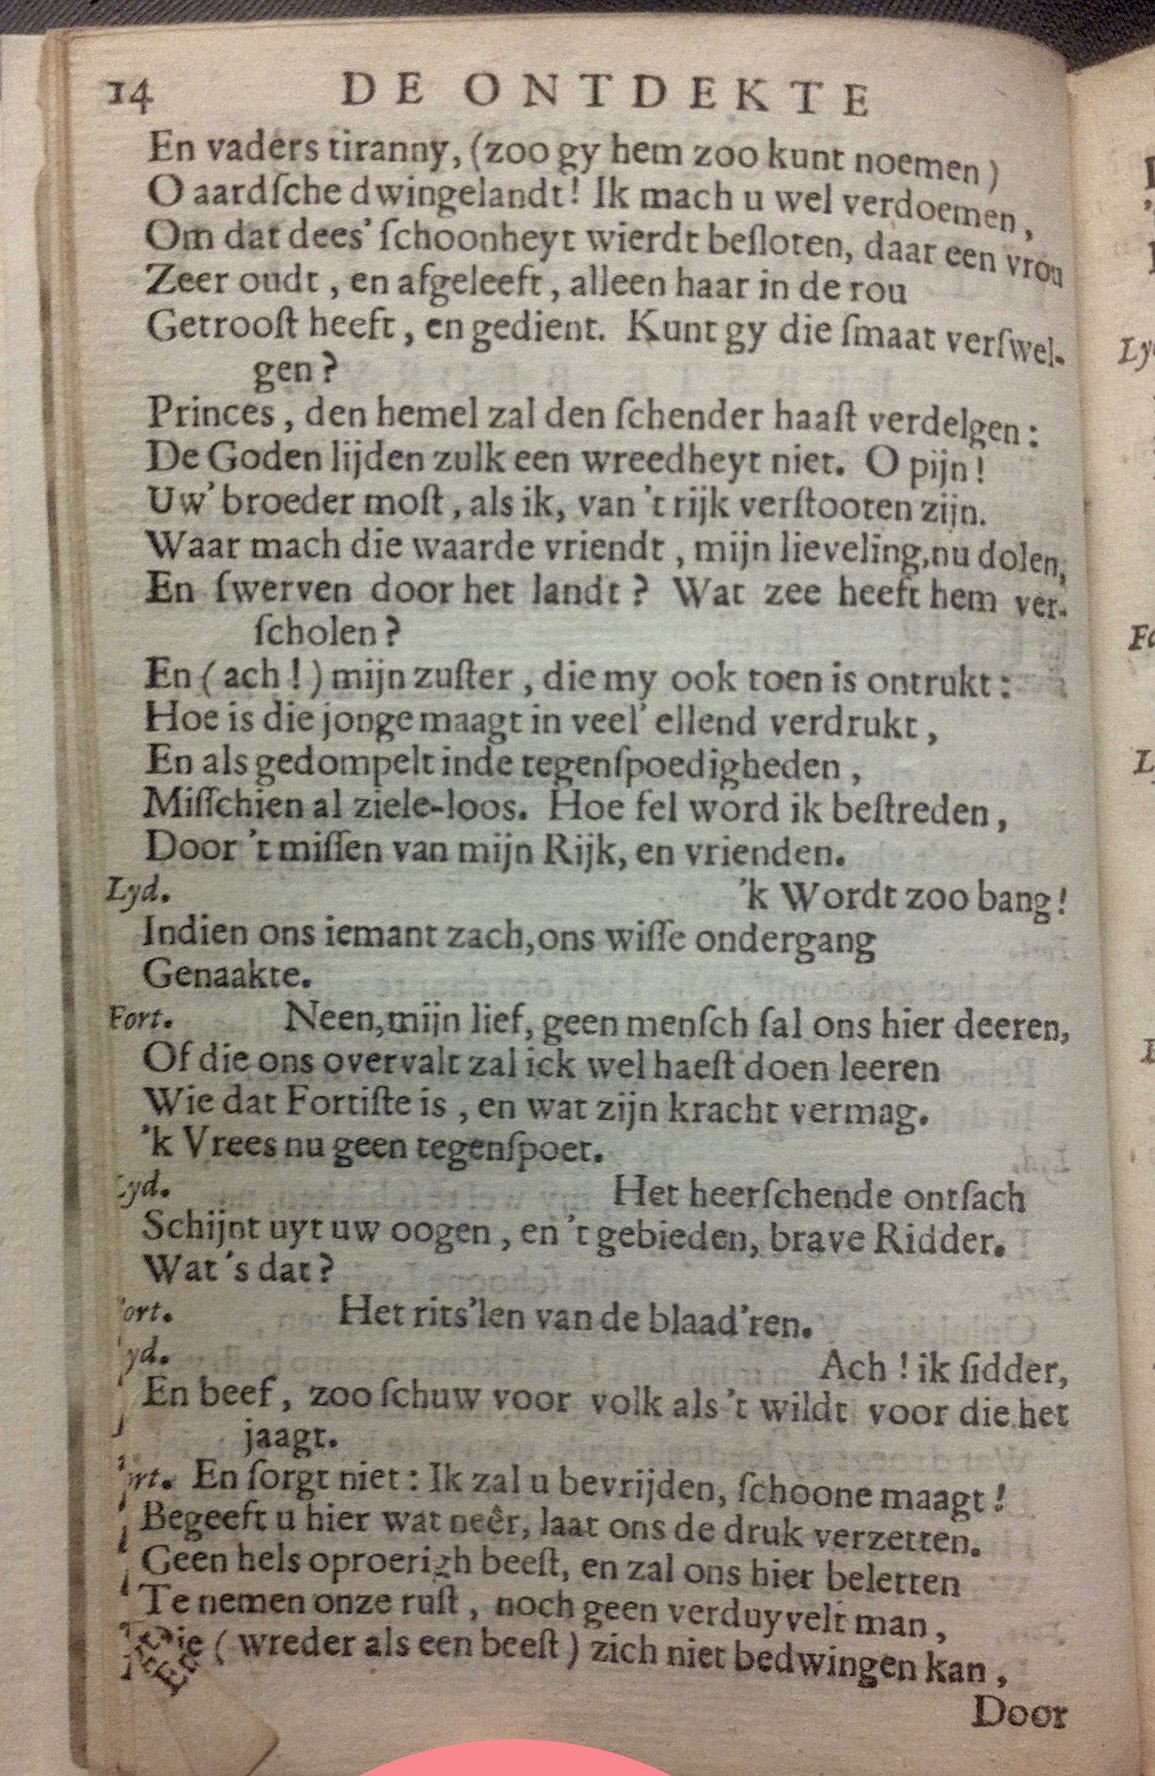 14 DE ONTDEKTE
En vaders tiranny, (zoo gy hem zoo kunt noemen)
O aardſche dwingelandt! Ik mach u wel verdoemen,
Om dat dees' ſchoonheyt wierdt beſloten, daar een vrou
Zeer oudt, en afgeleeft, alleen haar in de rou
Getrooſt heeft, en gedient. Kunt gy die ſmaat verſwel-
gen?
Princes, den hemel zal den ſchender haaſt verdelgen:
De Goden lijden zulk een wreedheyt niet. O pijn!
Uw' broeder moſt, als ik, van 't rijk verſtooten zijn.
Waar mach die waarde vriendt, mijn lieveling, nu dolen,
En ſwerven door het landt? Wat zee heeft hem ver-
ſcholen?
En (ach!) mijn zuſter, die my ook toen is ontrukt:
Hoe is die jonge maagt in veel' ellend verdrukt,
En als gedompelt inde tegenſpoedigheden,
Miſſchien al ziele-loos. Hoe fel word ik beſtreden,
Door 't miſſen van mijn Rijk, en vrienden.
Lyd. 'k Wordt zoo bang!
Indien ons iemant zach, ons wiſſe ondergang
Genaakte.
Fort. Neen, mijn lief, geen menſch ſal ons hier deeren,
Of die ons overvalt zal ick wel haeſt doen leeren
Wie dat Fortiſte is, en wat zijn kracht vermag.
'k Vrees nu geen tegenſpoet.
Lyd. Het heerſchende ontſach
Schijnt uyt uw oogen, en 't gebieden, brave Ridder.
Wat 's dat?
ort. Het rits'len van de blaad'ren.
yd. Ach! ik ſidder,
En beef, zoo ſchuw voor volk als 't wildt voor die het
jaagt.
rt. En ſorgt niet: Ik zal u bevrijden, ſchoone maagt!
Begeeft u hier wat neêr, laat ons de druk verzetten.
Geen hels oproerigh beeſt, en zal ons hier beletten
Te nemen onze ruſt, noch geen verduyvelt man,
Die (wreder als een beeſt) zich niet bedwingen kan,
Door